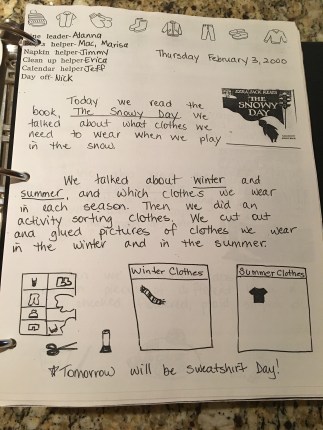 Line leader- Alanna
Snacks helper- Mac, Marisa
Napkin helper- Jimmy
Clean up helper Erica
Calendar helper Jeff
Day off- Nick
Thursday February 3, 2000
Today we read the
book, The Snowy Day. We
talked about what clothes we
need to wear when we play
in the snow.
EZRA JACK KEATS
THE
SNOWY
DAY
We talked about winter and
summer, and which clothes we wear
in each season. Then we did an
activity sorting clothes. We cut out
and glued pictures of clothes we wear
in the winter and in the summer.
Winter Clothes
Summer Clothes
Tomorrow will be sweatshirt Day!